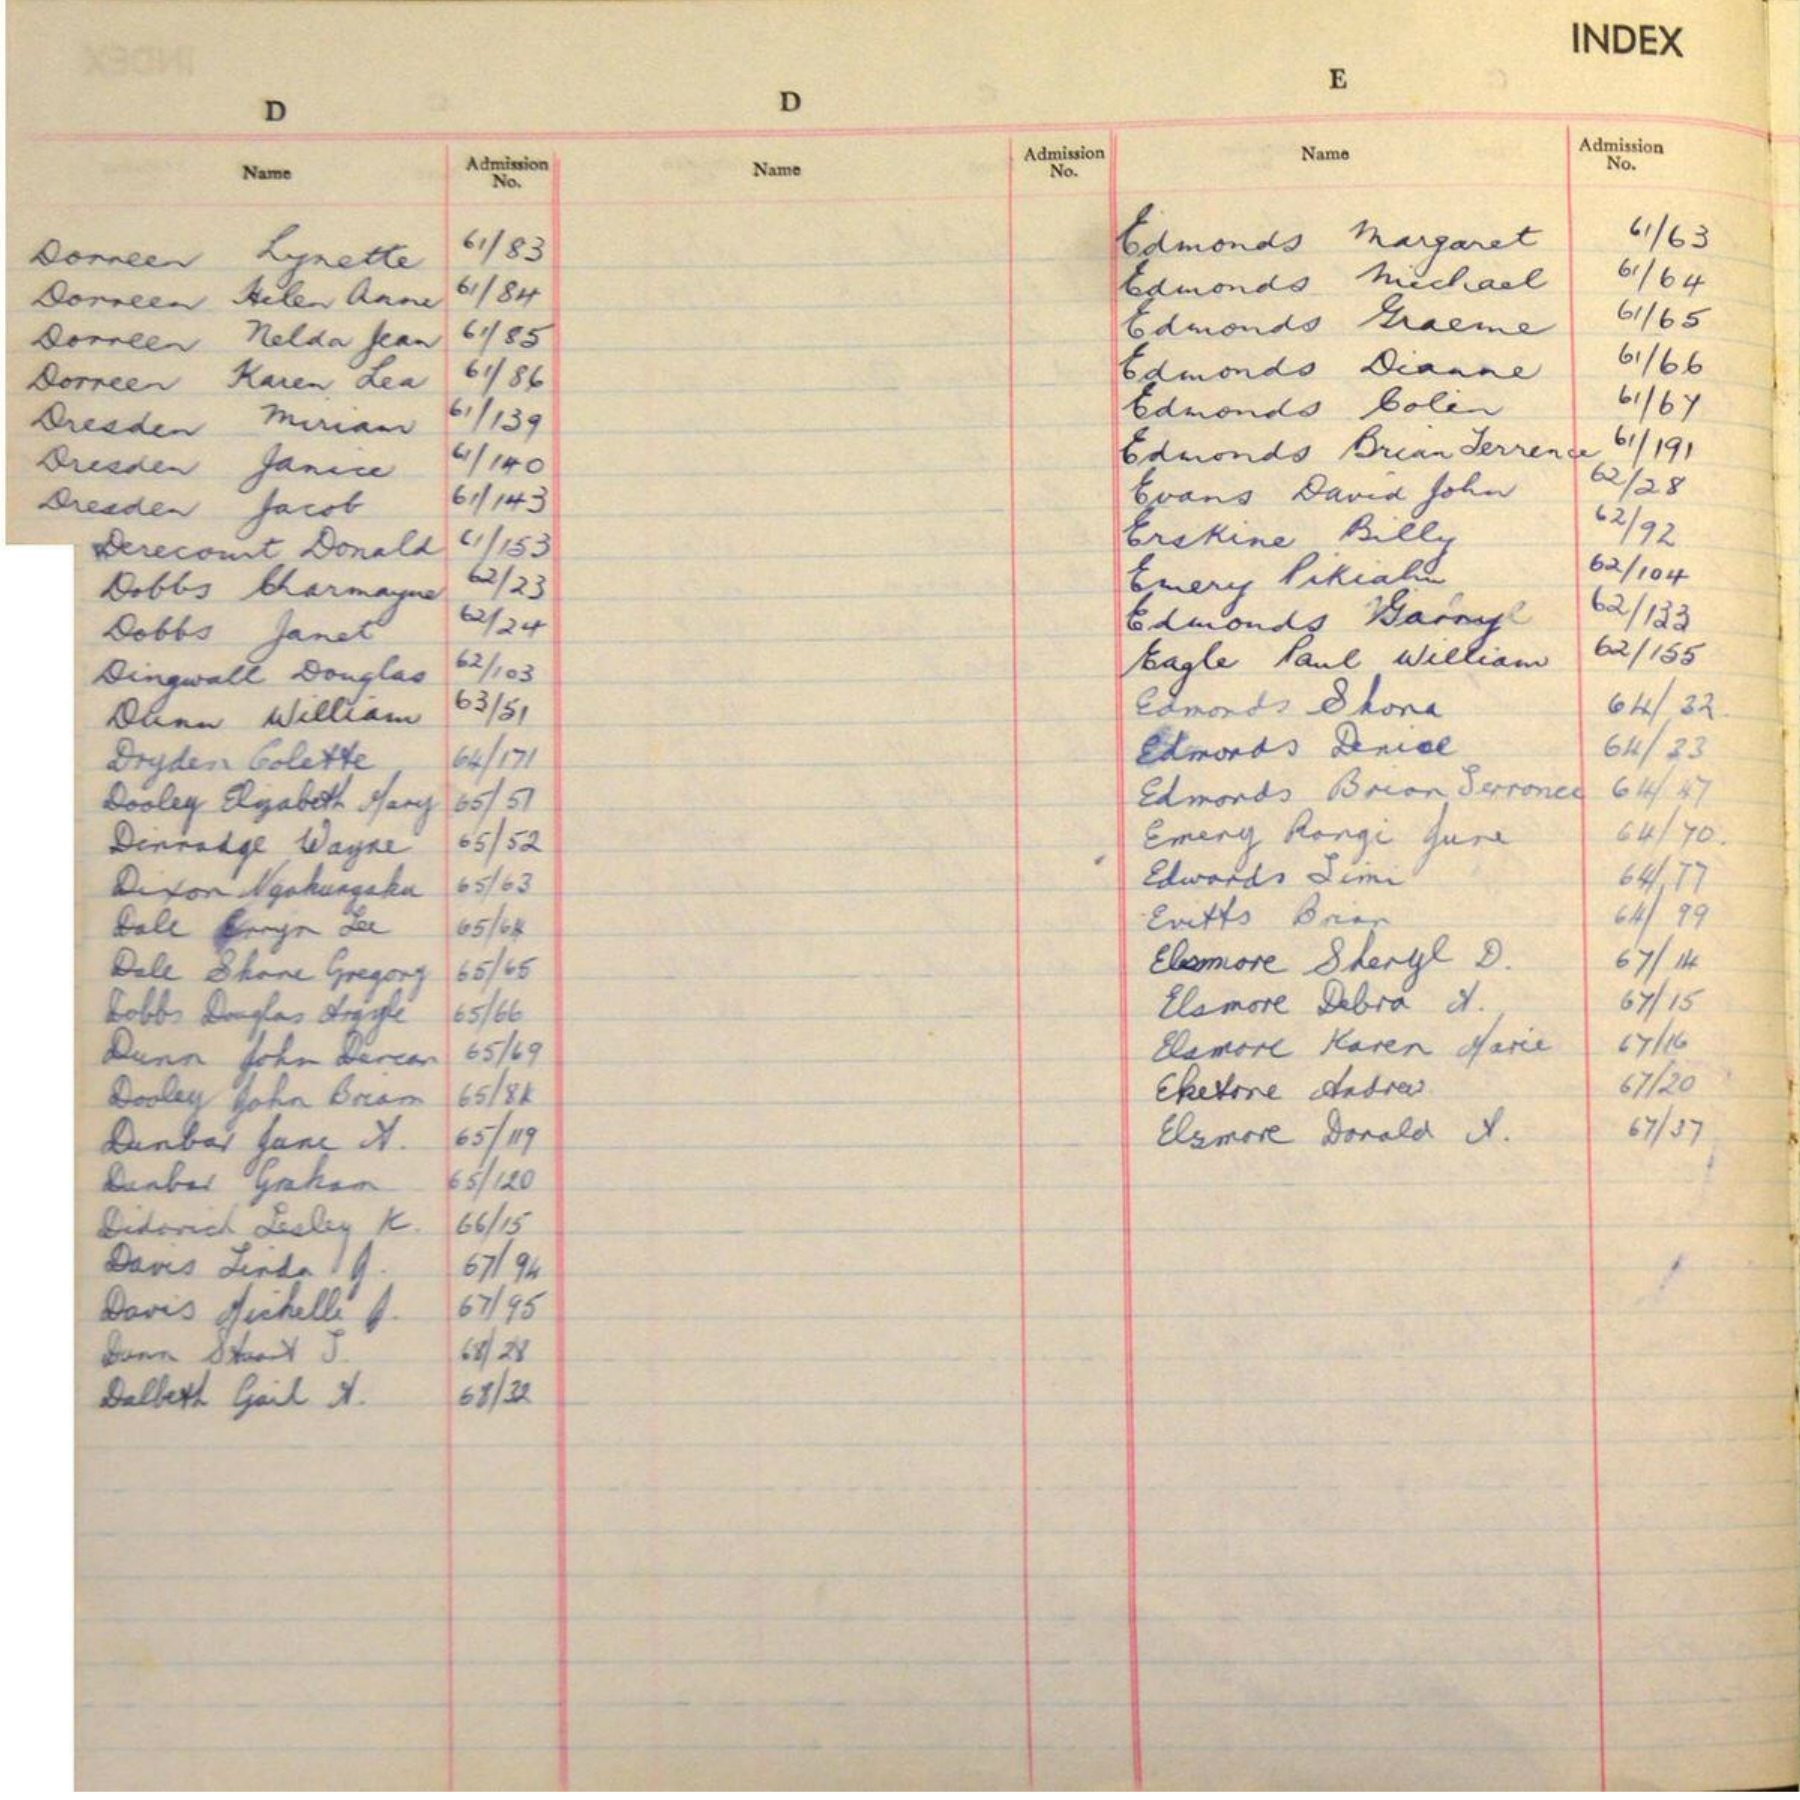 INDEX
D
D
E
Name
Admission No.
Name
Admission No.
Name
Admission No.
Dorreen Lynette 61/83
Dorreen Helen Anne 61/84
Dorreen Nelda Jean 61/85
Dorreen Karen Lea 61/86
Dresden Miriam 61/139
Dresden Janice 61/140
Dresden Jacob 61/143
Derecourt Donald 61/153
Dobbs Charmayne 62/23
Dobbs Janet 62/24
Dingwall Douglas 62/103
Dunn William 63/51
Dryden Colette 64/171
Dooley Elizabeth Mary 65/51
Wayne 65/52
Dixon 65/63
Dale Lee 65/64
Dale Shane Gregory 65/65
Dobbs Douglas Argyle 65/66
Dunn John Duncan 65/69
Dooley John Brian 65/84
Dunbar June A. 65/119
Dunbar Graham 65/120
Lesley K. 66/15
Davis Linda J. 67/94
Davis Michelle J. 67/95
Dunn Stuart J. 68/28
Dalbeth Gail A. 68/32
Edmonds Margaret 61/63
Edmonds Michael 61/64
Edmonds Graeme 61/65
Edmonds Dianne 61/66
Edmonds Colin 61/67
Edmonds Brian Terrence 61/191
Evans David John 62/28
Erskine Billy 62/92
Emery 62/104
Edmonds 62/133
Eagle Paul William 62/155
Edmonds Shona 64/32
Edmonds Denice 64/33
Edmonds Brian Terrence 64/47
Emery Rangi June 64/70.
Edwards Timi 64/77
Evitts Brian 64/99
Elsmore Sheryl D. 67/14
Elsmore Debra A. 67/15
Elsmore Karen Marie 67/16
Eketone Andrew 67/20
Elsmore Donald A. 67/37